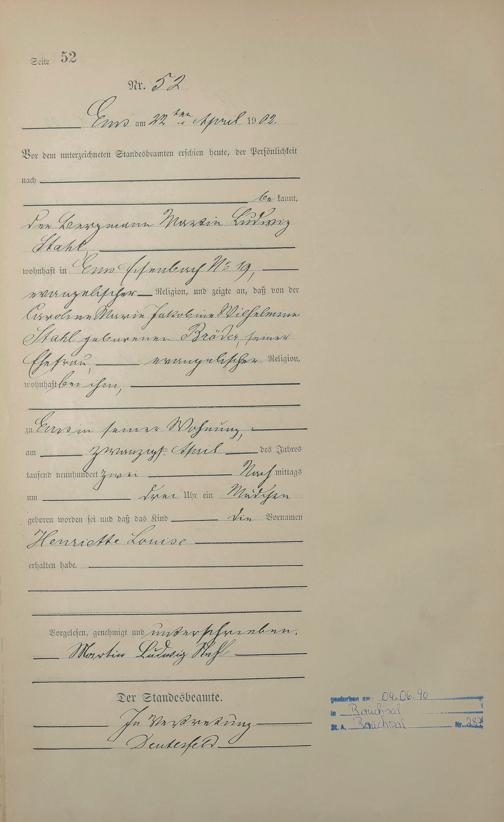 Seite 52
Nr. 52
Ems am 22 ten April 1902.
Vor dem unterzeichneten Standesbeamten erschien heute, der Persönlichkeit
nach
be kannt,
der Bergmann Martin Ludwig
Stahl,
wohnhaft in Ems Nr. 19,
evangelischer Religion, und zeigte an, daß von der
Caroline Marie Jakobine Wilhelmine
Stahl geborenen Bröder seiner
Ehefrau, evangelischer Religion,
wohnhaft bei ihm,
zu Ems in seiner Wohnung,
am zwanzigsten April des Jahres
tausend neunhundert zwei Nach mittags
um drei Uhr ein Mädchen
geboren worden sei und daß das Kind die Vornamen
Henriette Louise
erhalten habe.
Vorgelesen, genehmigt und unterschrieben.
Martin Ludwig Stahl
Der Standesbeamte.
In Vertretung
gestorben am 04.06.90
in Bruchsal
St. A. Bruchsal Nr.